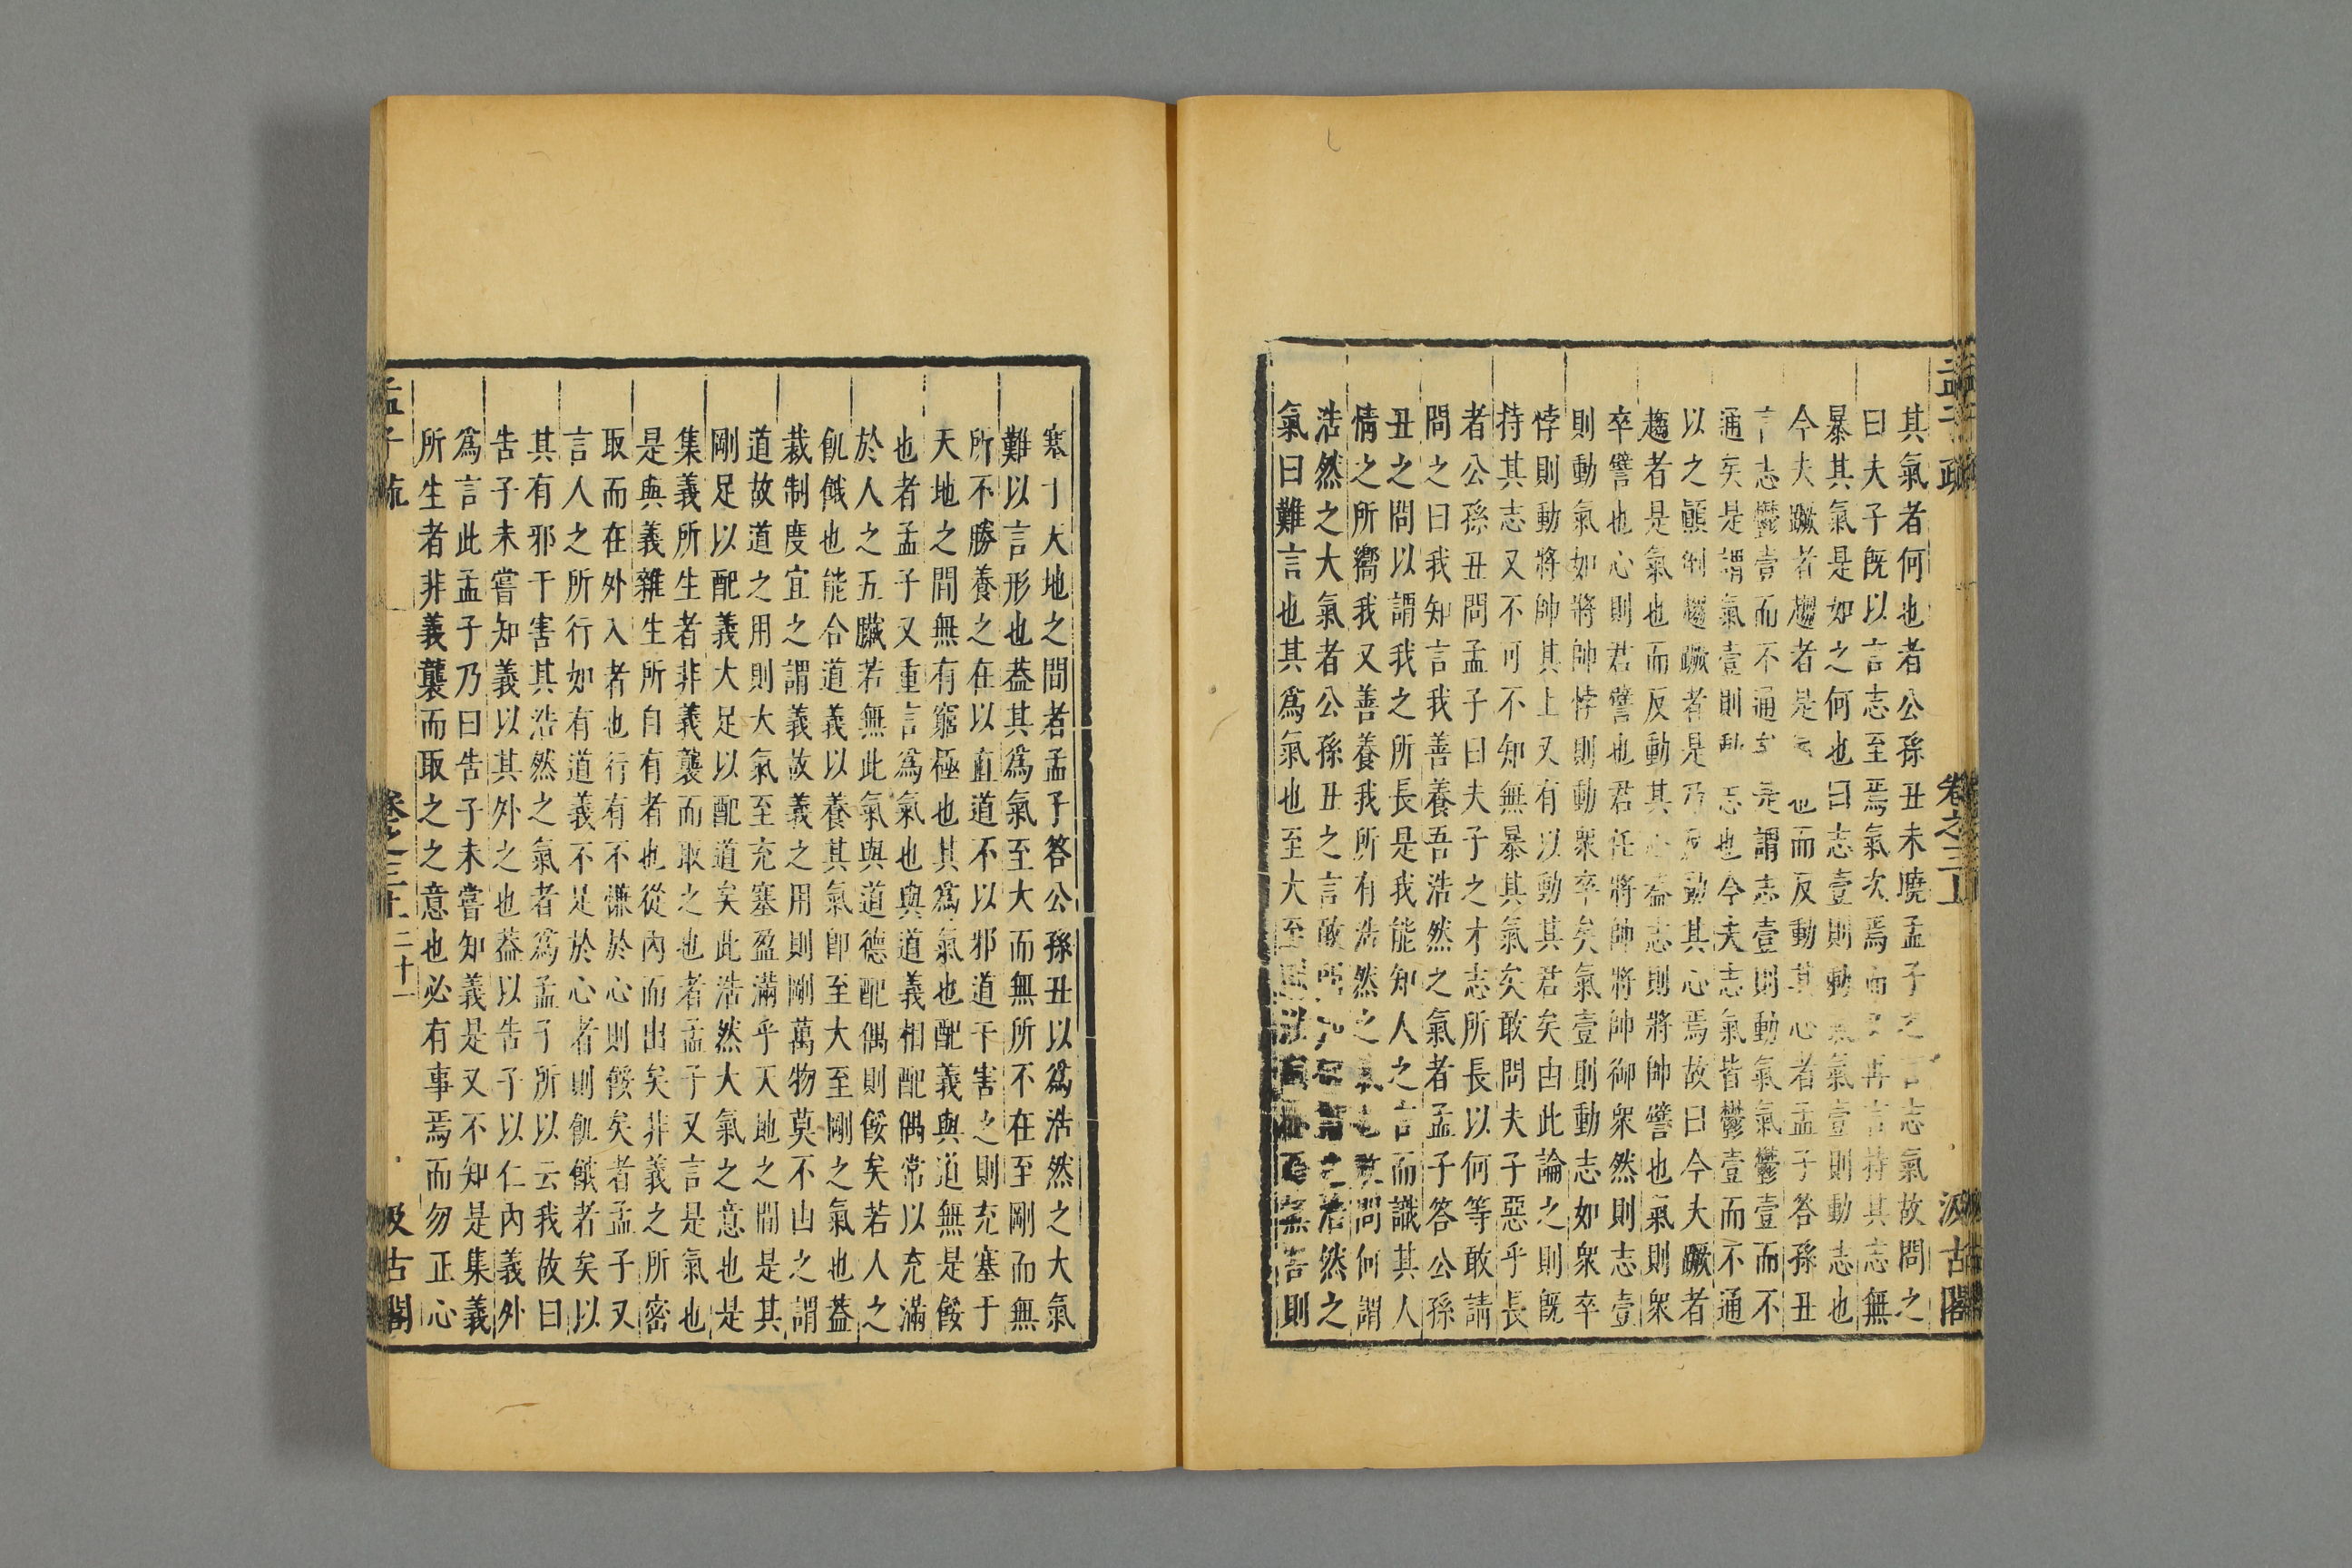 孟子疏 卷之三上 汲古閣
其氣者何也者公孫丑未曉孟子之言志氣故問之
曰夫子旣以言志至焉氣次焉而又再言持其志無
暴其氣是如之何也曰志壹則動氣氣壹則動志也
今夫蹶者趨者是氣也而反動其心者孟子答孫丑
言志鬱壹而不通矣是謂志壹則動氣氣鬱壹而不
通矣是謂氣壹則動志也今夫志氣皆鬱壹而不通
以之顚倒趨蹶者是乃反動其心焉故曰今夫蹶者
趨者是氣也而反動其心蓋志則將帥譬也氣則衆
卒譬也心則君譬也君任將帥將帥御衆然則志壹
則動氣如將帥悖則動衆卒矣氣壹則動志如衆卒
悖則動將帥其上又有以動其君矣由此論之則旣
持其志又不可不知無暴其氣矣敢問夫子惡乎長
者公孫丑問孟子曰夫子之才志所長以何等敢請
問之曰我知言我善養吾浩然之氣者孟子答公孫
丑之問以謂我之所長是我能知人之言而識其人
情之所嚮我又善養我所有浩然之氣也敢問何謂
浩然之大氣者公孫丑之言敢問如何謂之浩然之
氣曰難言也其爲氣也至大至剛以直養而無害則
塞于天地之間者孟子答公孫丑以爲浩然之大氣
難以言形也葢其爲氣至大而無所不在至剛而無
所不勝養之在以直道不以邪道干害之則充塞于
天地之間無有窮極也其爲氣也配義與道無是餒
也者孟子又重言爲氣也與道義相配偶常以充滿
於人之五臟若無此氣與道德配偶則餒矣若人之
飢餓也能合道義以養其氣卽至大至剛之氣也葢
裁制度宜之謂義故義之用則剛萬物莫不由之謂
道故道之用則大氣至充塞盈滿乎天地之間是其
剛足以配義大足以配道矣此浩然大氣之意也是
集義所生者非義襲而取之也者孟子又言是氣也
是與義雜生所自有者也從內而出矣非義之所密
取而在外入者也行有不慊於心則餒矣者孟子又
言人之所行如有道義不足於心者則飢餓者矣以
其有邪干害其浩然之氣者爲孟子所以云我故曰
告子未嘗知義以其外之也葢以告子以仁內義外
爲言此孟子乃曰告子未嘗知義是又不知是集義
所生者非義襲而取之之意也必有事焉而勿正心
孟子疏 卷之三上 二十一 汲古閣